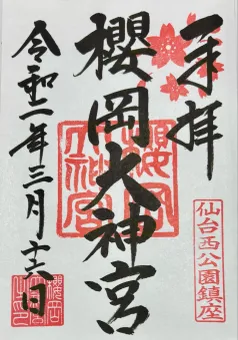 奉拝
櫻岡大神宮
令和二年三月十六日
仙台西公園鎮座